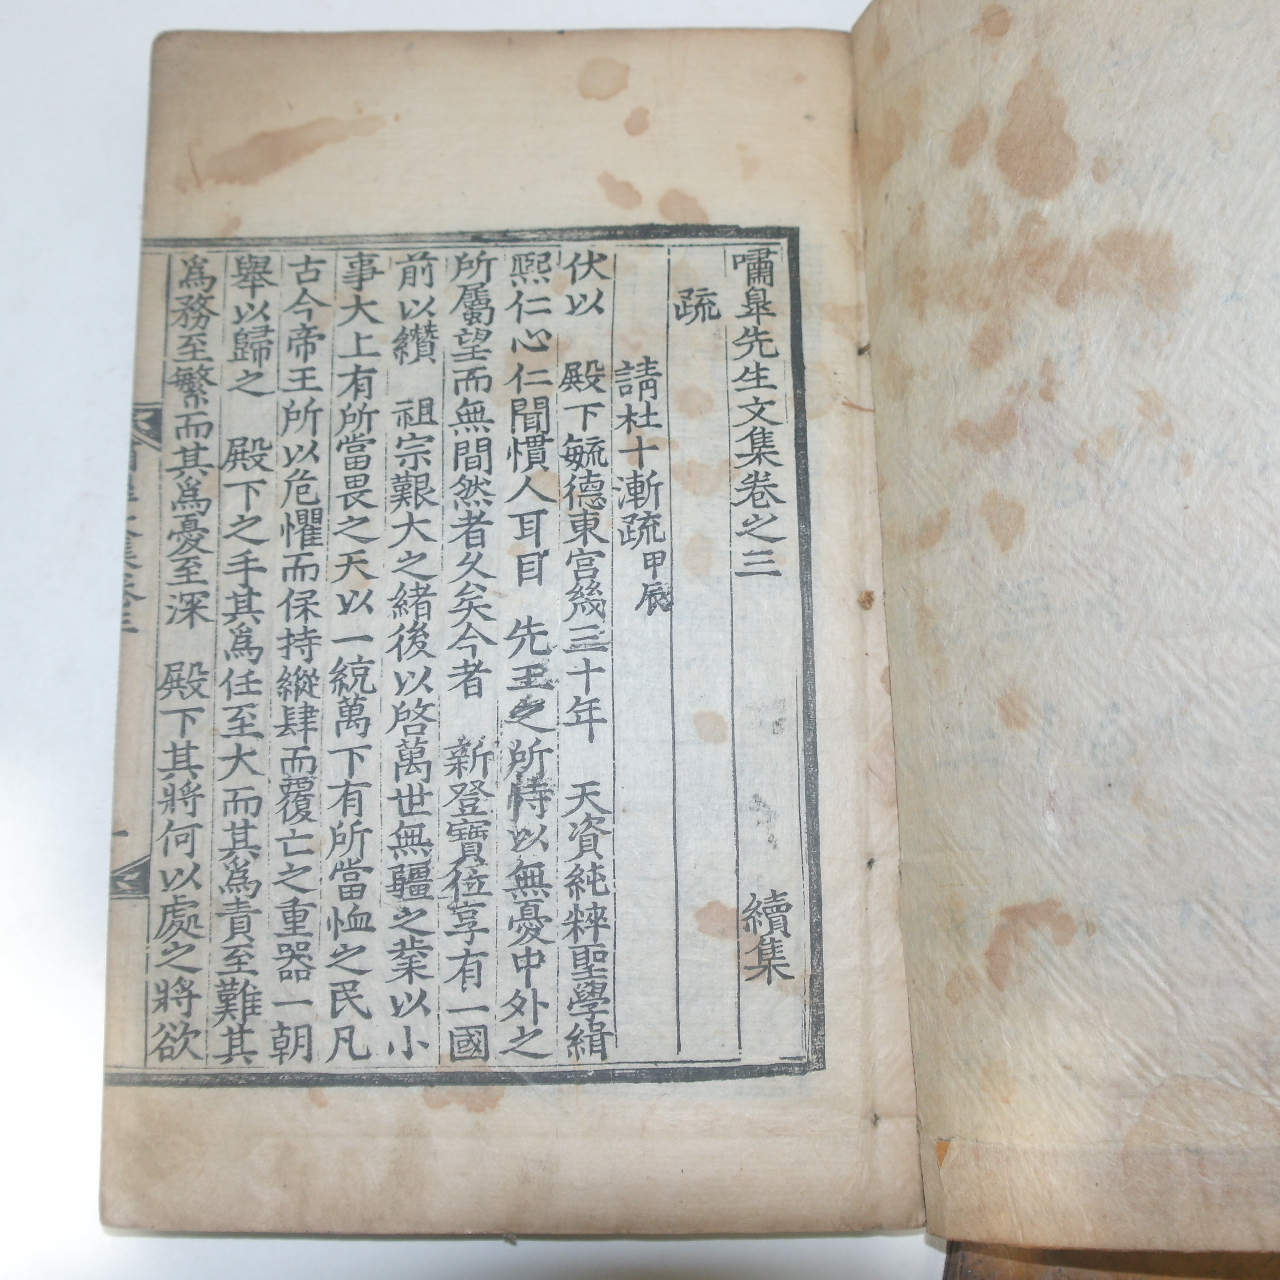 嘯皐先生文集卷之三　續集
疏
請杜十漸疏甲辰
伏以　殿下毓德東宮幾三十年　天資純粹聖學緝
熙仁心仁聞慣人耳目　先王之所恃以無憂中外之
所屬望而無間然者久矣今者　新登寶位享有一國
前以纘　祖宗艱大之緖後以啓萬世無疆之業以小
事大上有所當畏之天以一統萬下有所當恤之民凡
古今帝王所以危懼而保持縱肆而覆亡之重器一朝
擧以歸之　殿下之手其爲任至大而其爲責至難其
爲務至繁而其爲憂至深　殿下其將何以處之將欲